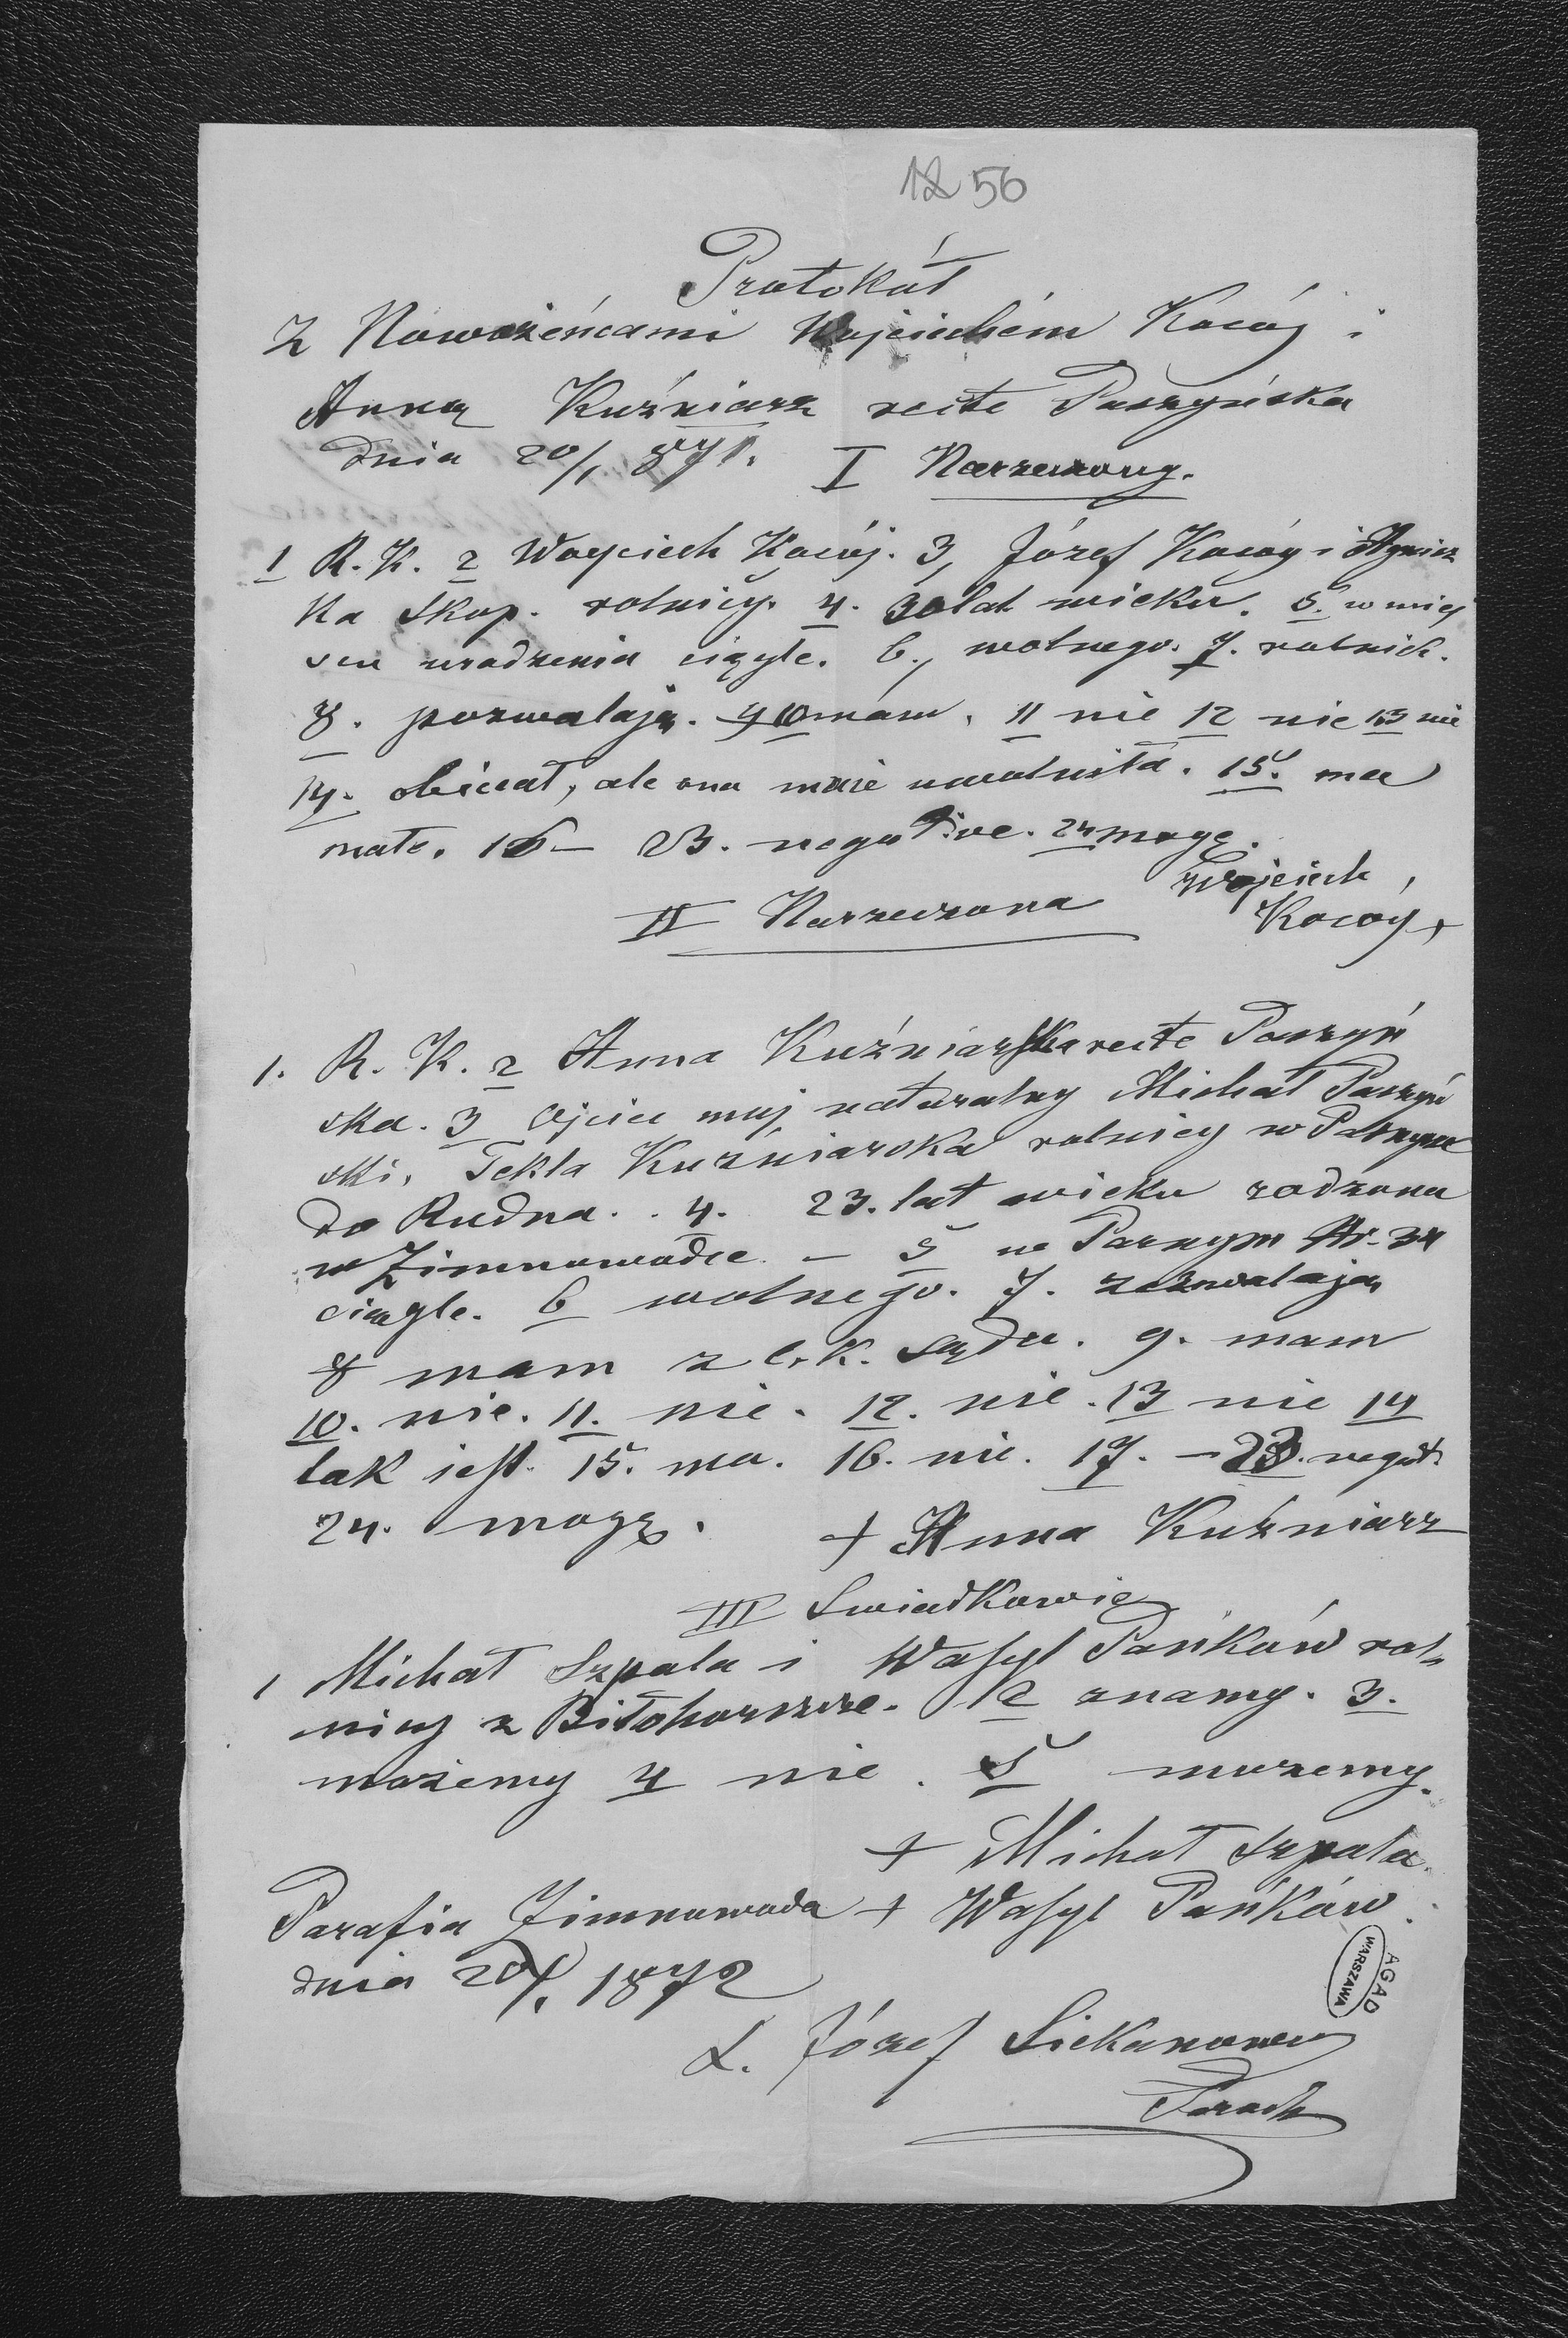 12 56
Protokół
Z Nowożeńcami Wojciechem Kocój i
Anną Kuźniarz recte Paszyńska
dnia 20/1 871. I Narzeczony.
1 R. K. 2 Woyciech Kocój. 3, Józef Kocóy i Agnisz
ka Skop. rolnicy. 4. 30 lat wieku. 5. w miej
scu urodzenia ciągle. 6., wolnego. 7. rolnik.
8. pozwalają. 9 10 mam. 11 nie 12 nie 13 nie
14. obiecał, ale ona mnie uwolniła. 15. ma
mate. 16 – 23. negative. 24 mogę.
Wojciech
II Narzeczona Kocoy +
1. R. K. 2 Anna Kuźniarska recte Paszyń
ska. 3 Ojciec muj naturalny Michał Paszyń
ski, Tekla Kuźniarska rolnicy w
do Rudna. . 4. 23. lat wieku rodzona
w Zimnowodce – 5 w Nr. 34
ciągle. 6 wolnego. 7. zezwalają
8 mam z c. k. sądu. 9. mam
10. nie. 11. nie. 12. nie. 13 nie 14
tak jest. 15. ma. 16. nie. 17. – 23. negat.
24. mogę. + Anna Kuźniarz
III Swiadkowie
1 Michał Szpala i Wasyl Pańków rol
nicy z Biłohorszcze. 2 znamy. 3.
możemy 4 nie. 5 mozemy.
+ Michał Szpala.
Parafia Zimnowoda + Wasyl Pańków.
dnia 20/1 1872
AGAD
WARSZAWA
X. Józef
Paroch